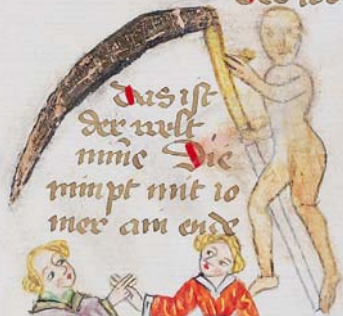 Das ist
der welt
mine Die
nimpt mit io
mer am ende